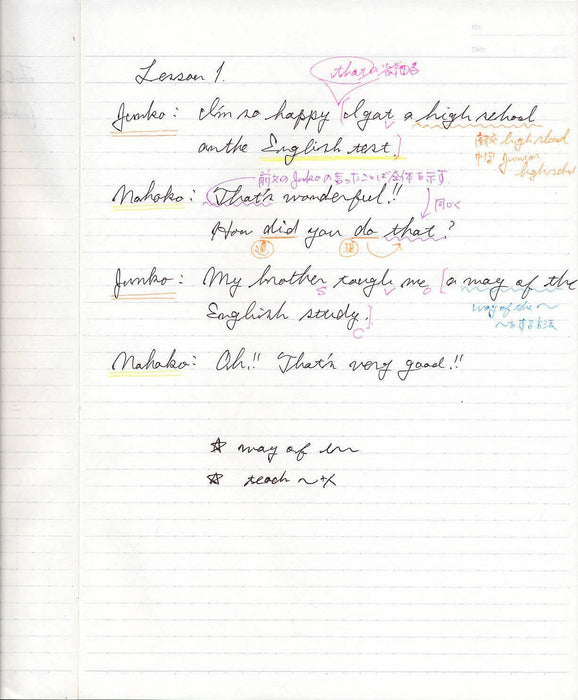 Lesson 1.
thatの省略
Junko: I'm so happy [I gat a high school
on the English test.]
高校 high school
中学 junior
high school
前文のJunkoの言ったことば全体を示す
Nahoko: That's wonderful!!
同じく
How did you do that?
過
Junko: My brother taugh me [a way of the
S V O
English study.]
C
way of the ~
~する方法
Nahoko: Oh!! That's very good!!
☆ way of
☆ teach